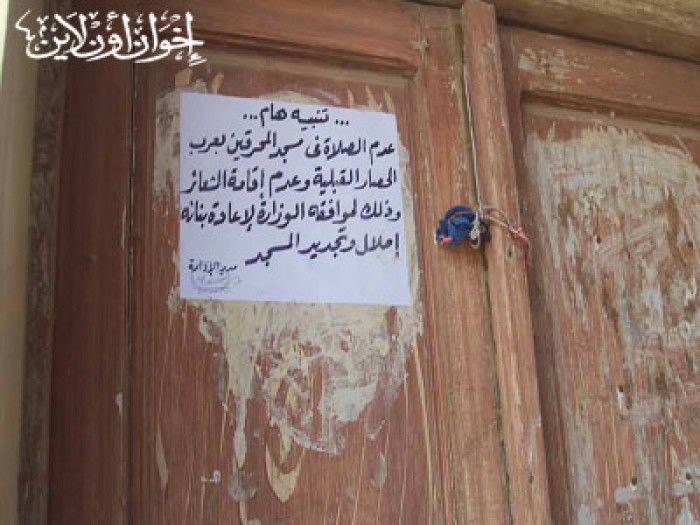 إخوان أون لاين
... تنبيه هام ...
عدم الصلاة فى مسجد المحرقين بعرب
الحصار القبلية وعدم إقامة الشعائر
وذلك لموافقه الوزارة لإعادة بنائه
إحلال وتجديد المسجد
مدير الإدارة